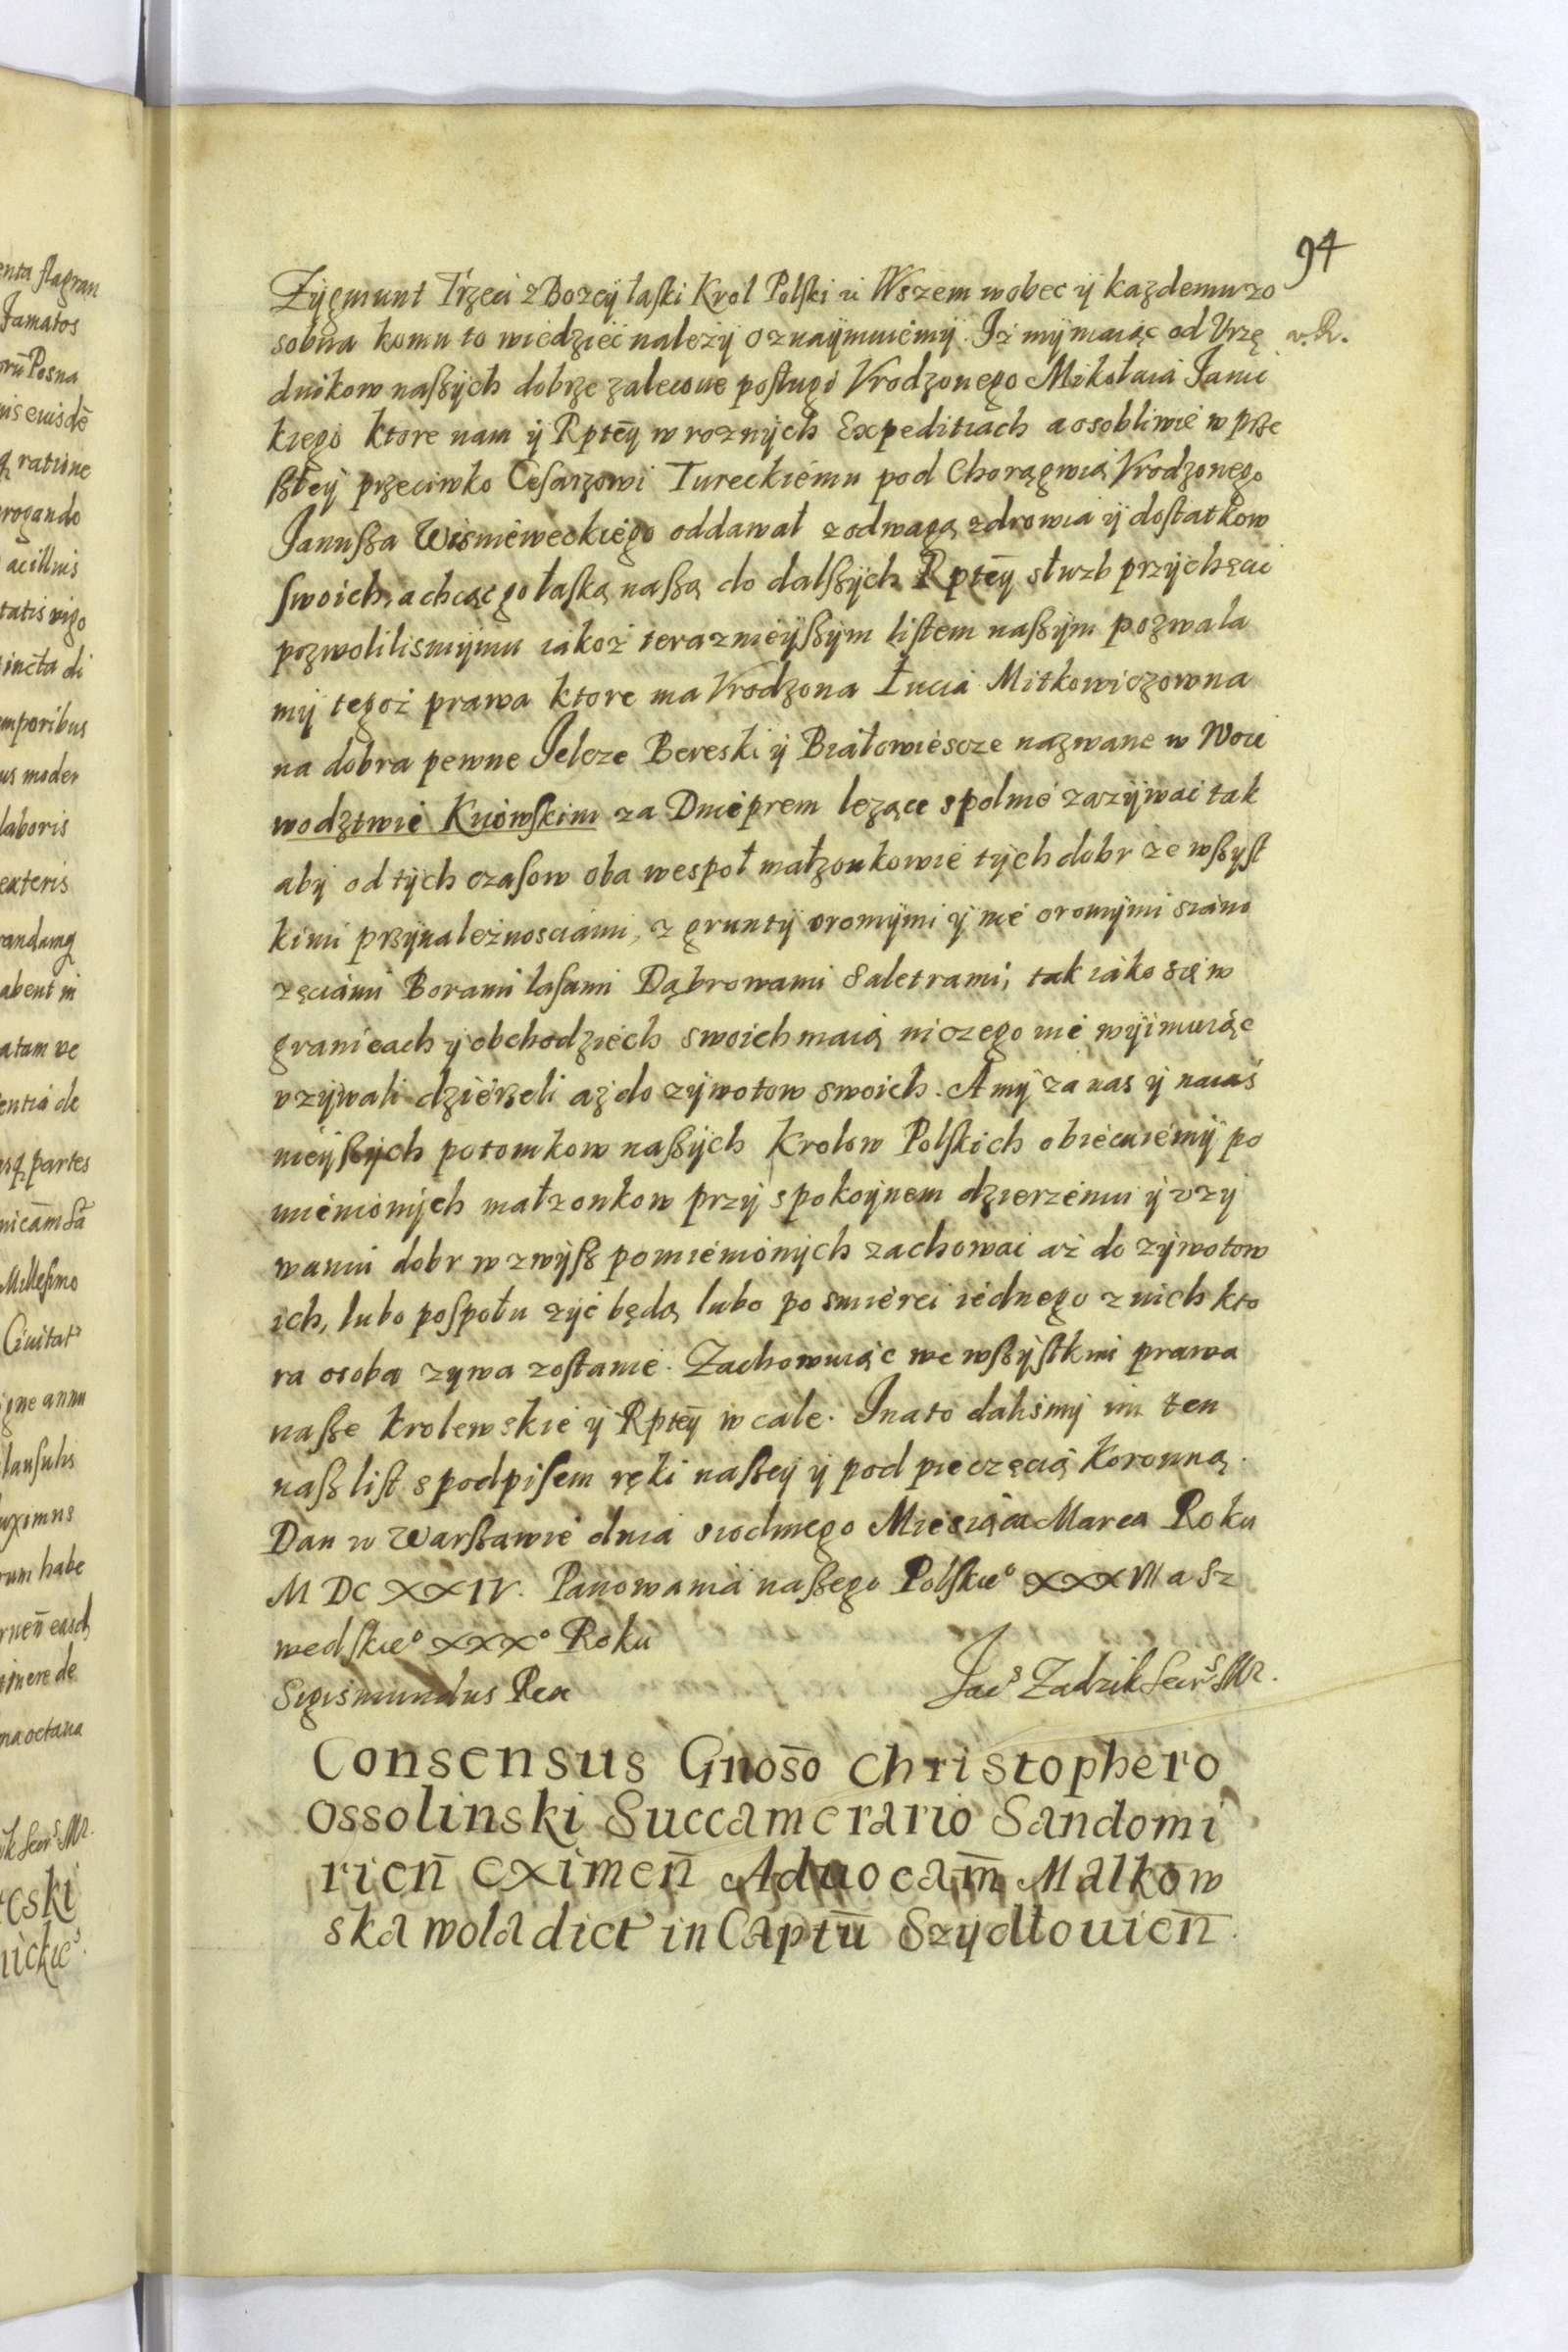 94
Zygmunt Trzeci z Bozey łaski Krol Polski ꝛc Wszem wobec y kazdemu zo
sobna komu to wiedzieć należy oznaymuiemy. Iż my maiąc od Vrzę
dnikow naszych dobrze zalecone posługi Vrodzonego Mikołaia Ianic
kiego ktore nam y Rptey w roznych Expeditiach a osobliwie w prze
szłey przeciwko Cesarzowi Tureckiemu pod Chorągwią Vrodzonego
Ianusza Wisnieweckiego oddawał z odwagą zdrowia y dostatkow
swoich, a chcąc go łaską naszą do dalszych Rptey służb przychęcić
pozwolilismy mu iakoż teraznieyszym listem naszym pozwala
my tegoż prawa ktore ma Vrodzona Łucia Mitkowiczowna
na dobra pewne Ielcze Bereski y Białowiescze nazwane w Woie
wodztwie Kiiowskim za Dnieprem leżące spolnie zazywać tak
aby od tych czasow oba wespoł małzonkowie tych dobr ze wszyst
kimi przynależnosciami, z grunty oromymi y nie oromymi siano
zęciami Borami lasami Dąbrowami Saletrami, tak iako się w
granicach y obchodziech swoich maią niczego nie wyimuiąc
vzywali dzierzeli aż do zywotow swoich. A my za nas y naiaś
nieyszych potomkow naszych Krolow Polskich obiecuiemy po
mienionych małzonkow przy spokoynem dzierzeniu y vzy
waniu dobr w zwysz pomienionych zachować aż do zywotow
ich, lubo pospołu zyć będą lubo po smierci iednego z nich kto
ra osoba zywa zostanie. Zachowuiąc we wszystkim prawa
nasze krolewskie y Rptey w cale. Ina to dalismy im ten
nasz list s podpisem ręki naszey y pod pieczęcią Koronną.
Dan w Warszawie dnia siodmego Miesiąca Marca Roku
M DC XXIV. Panowania naszego Polskie° XXXVII a Sz
wedskie° XXX° Roku
Sigismundus Rex Iac⁹ Zadzik Secr⁹ S M R.
Consensus Gnoso Christophero
Ossolinski Succamerario Sandomi
rien̄ eximen̄ Aduocam̄ Malkow
ska wola dict in Captū Szydłouien̄